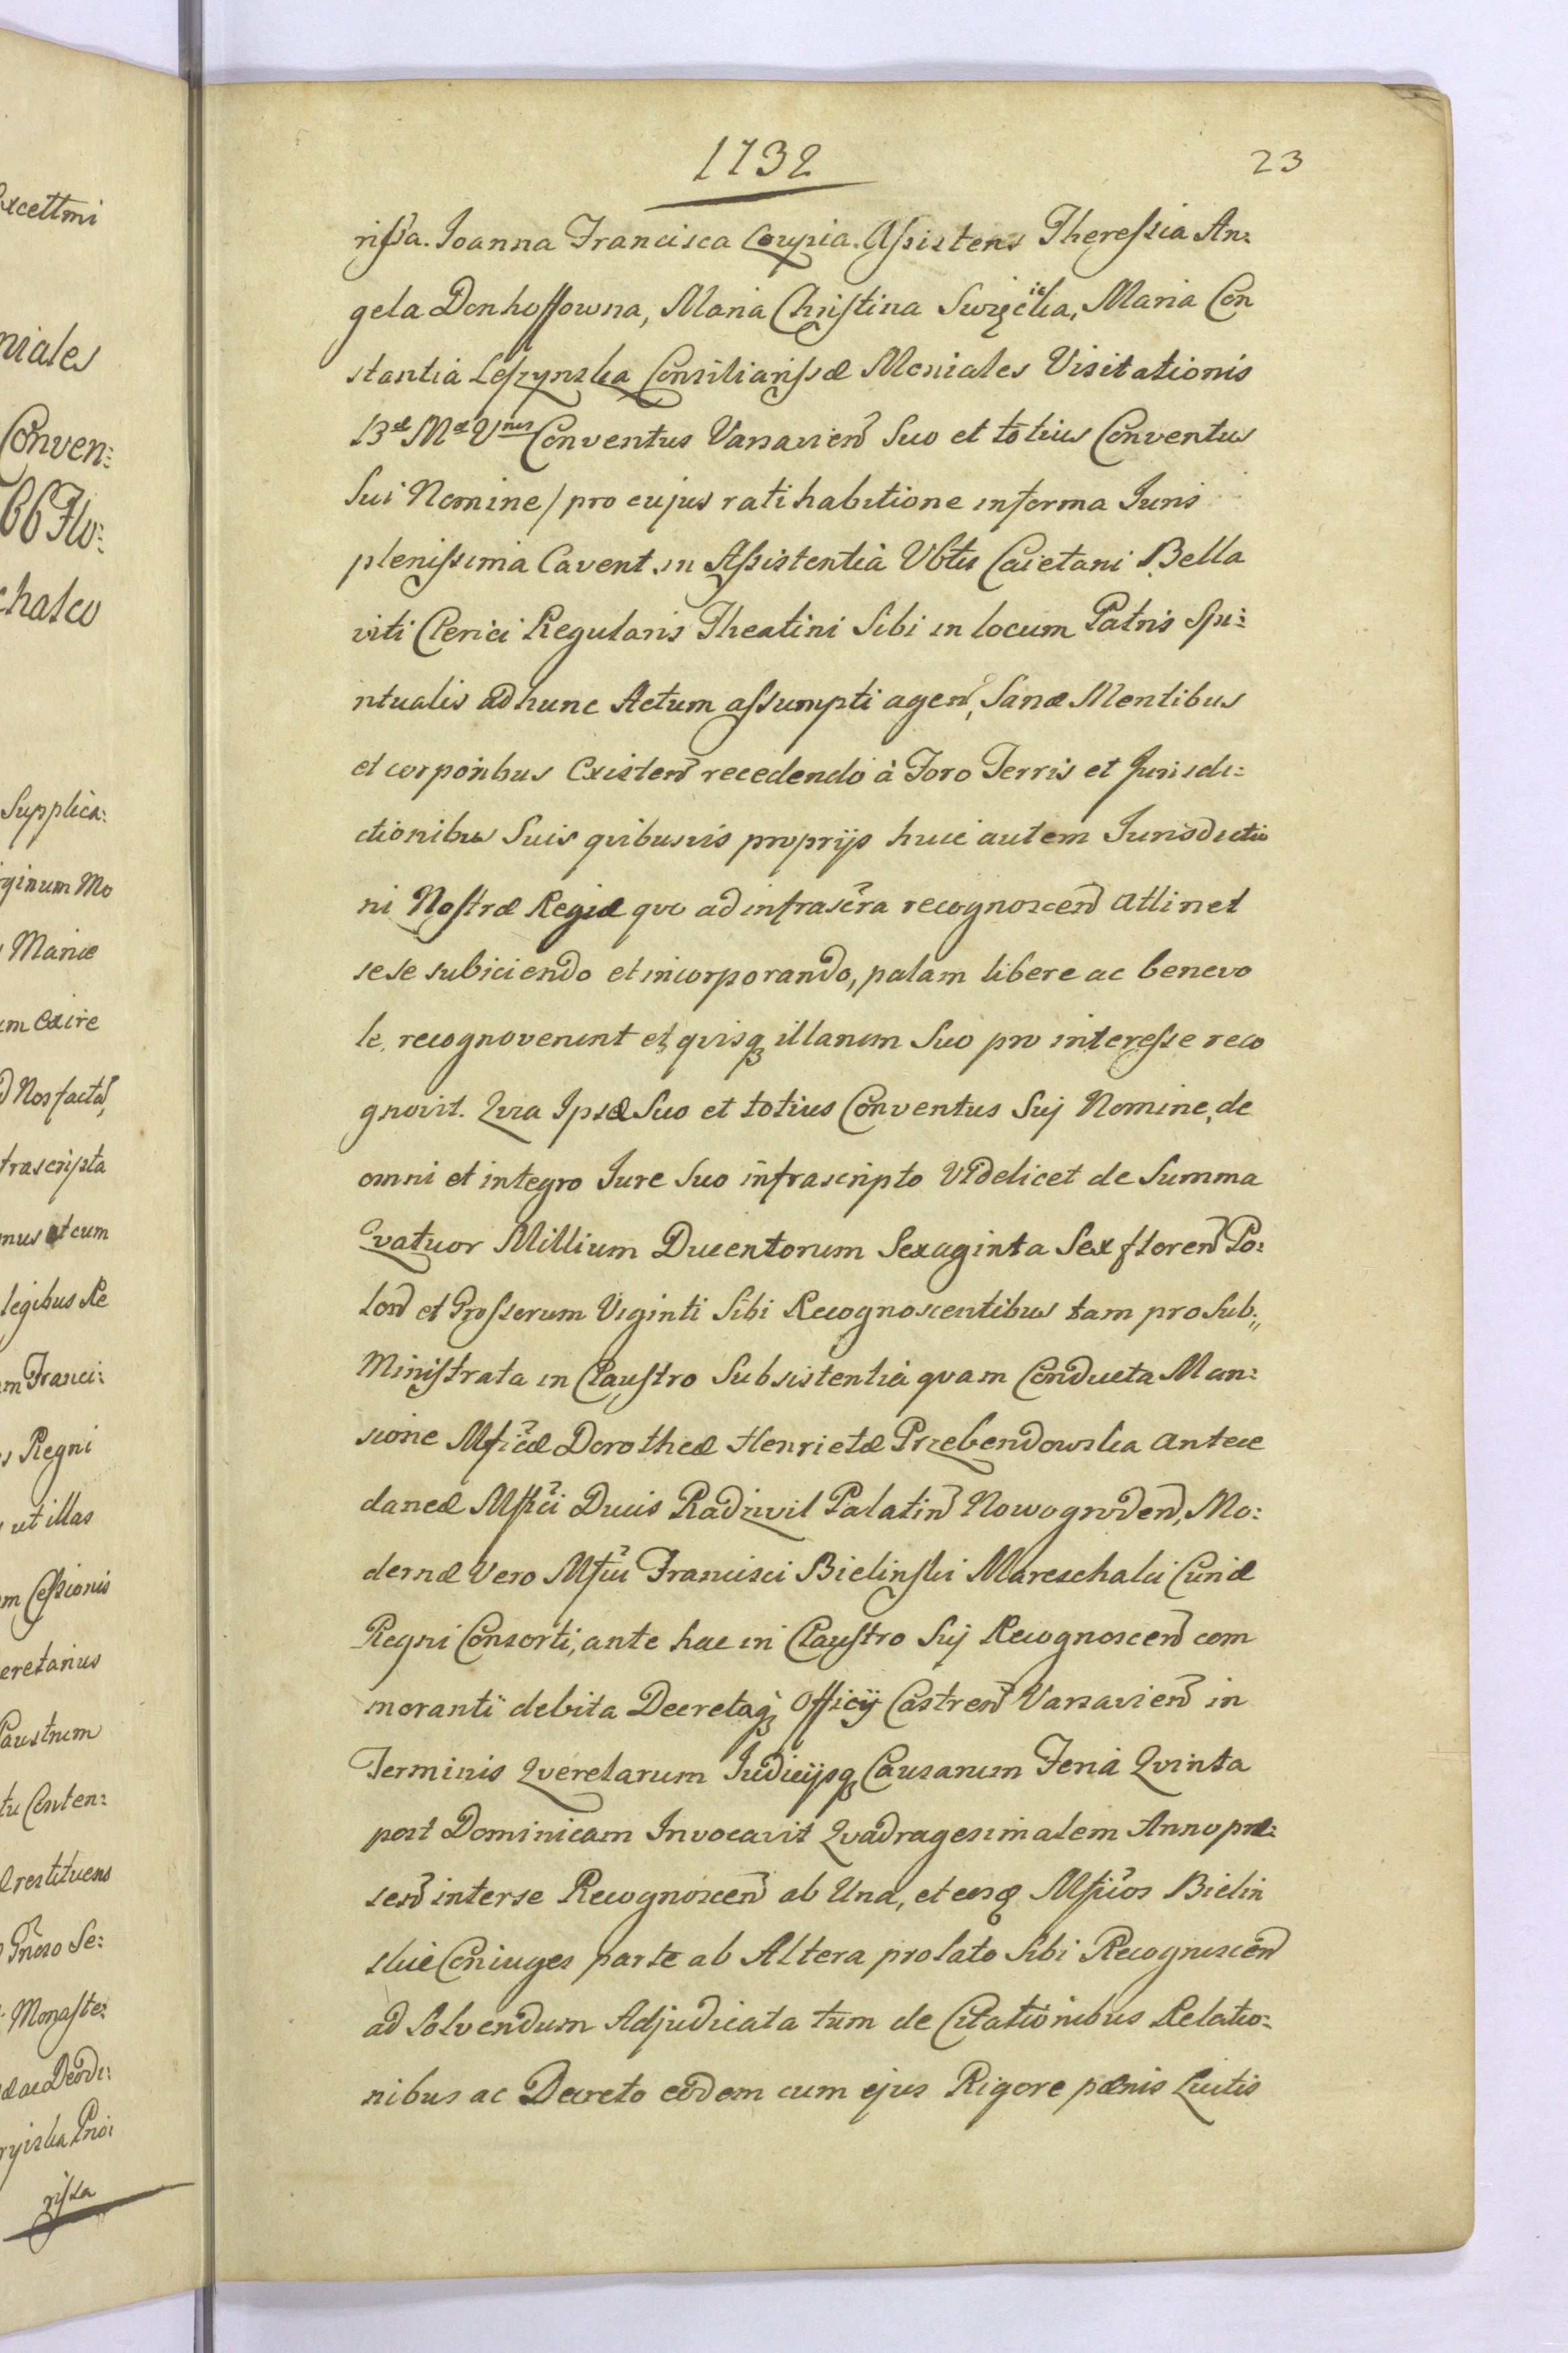 1732
23
rissa. Joanna Francisca Coupia. Assistens Theressia An:
gela Donhoffowna, Maria Christina Swięcicka, Maria Con
stantia Leszynska Consiliarissæ Moniales Visitationis
Bæ Mæ Vnis Conventus Varsavien̄ Suo et totius Conventus
Sui Nomine / pro cujus rati habitione in forma Juris
plenissima Cavent in Assistentia Vbtis Caietani Bella
viti Clerici Regularis Theatini Sibi in locum Patris Spi:
ritualis ad hunc Actum assumpti agen̄, Sanæ Mentibus
et corporibus Existen̄ recedendo à Foro Terris et Jurisdi:
ctionibus Suis qvibusvis proprijs huic autem Jurisdictio
ni Nostræ Regiæ qvo ad infrascr̄a recognoscen̄ attinet
se se subiciendo et incorporando, palam libere ac benevo
le, recognoverunt et qvisq3 illarum Suo pro interesse reco
gnovit. Qvia Ipsæ Suo et totius Conventus Suj Nomine, de
omni et integro Jure Suo infrascripto Videlicet de Summa
Qvatuor Millium Ducentorum Sexaginta Sex floren̄ Po:
lon̄ et Grossorum Viginti Sibi Recognoscentibus tam pro Sub:,,
Ministrata in Claustro Subsistentia qvam Conducta Man:
sione Mficæ Dorotheæ Henrietæ Przebendowska Antece
daneæ Mfici Ducis Radzivil Palatin̄ Nowogroden̄, Mo:
dernæ Vero Mfici Francisci Bielinski Mareschalci Curiæ
Regni Consorti, ante hac in Claustro Suj Recognoscen̄ com
moranti debita Decretaq3 Officij Castren̄ Varsavien̄ in
Terminis Qverelarum Judicijsq3 Causarum Feria Qvinta
post Dominicam Invocavit Qvadragesimalem Anno præ:
sen̄ inter se Recognoscen̄ ab Una, et eosq3 Mficos Bielin
skie Coniuges parte ab Altera prolato Sibi Recognoscen̄
ad Solvendum Adjudicata tum de Citationibus Relatio:
nibus ac Decreto eodem cum ejus Rigore pænis Luitis